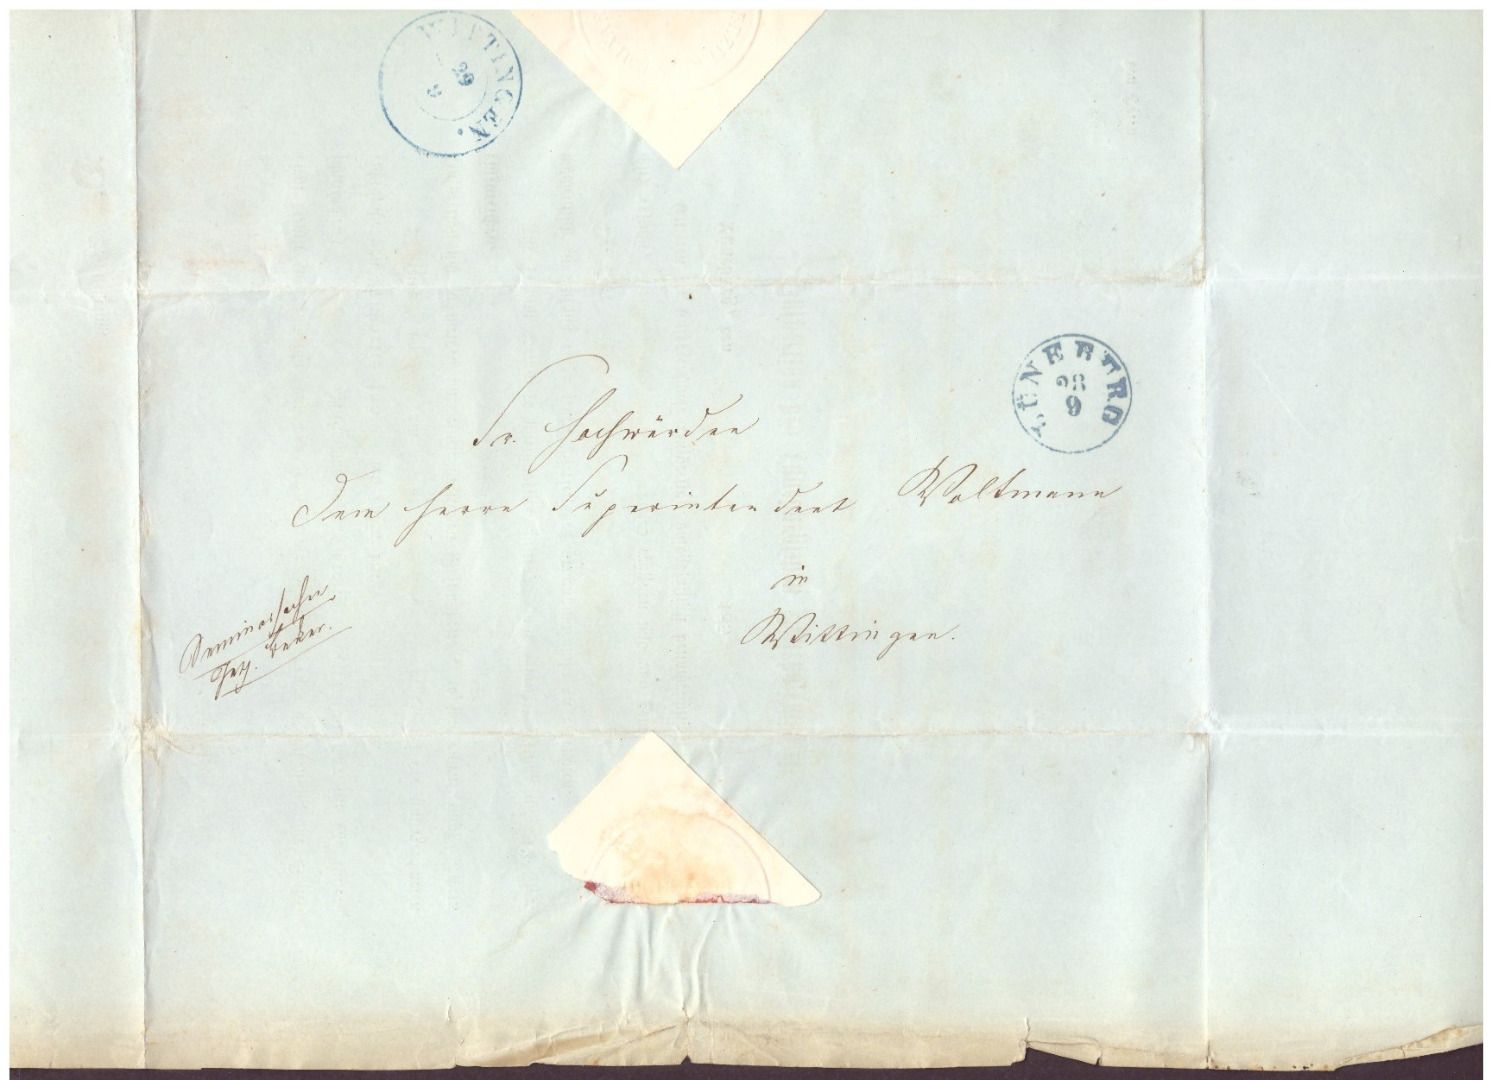 WITTINGEN.
29
LÜNEBURG
28
9
Sr. Hochwürden
Dem Herrn Superintendent Woltmann
in
Wittingen.
Seminarsache